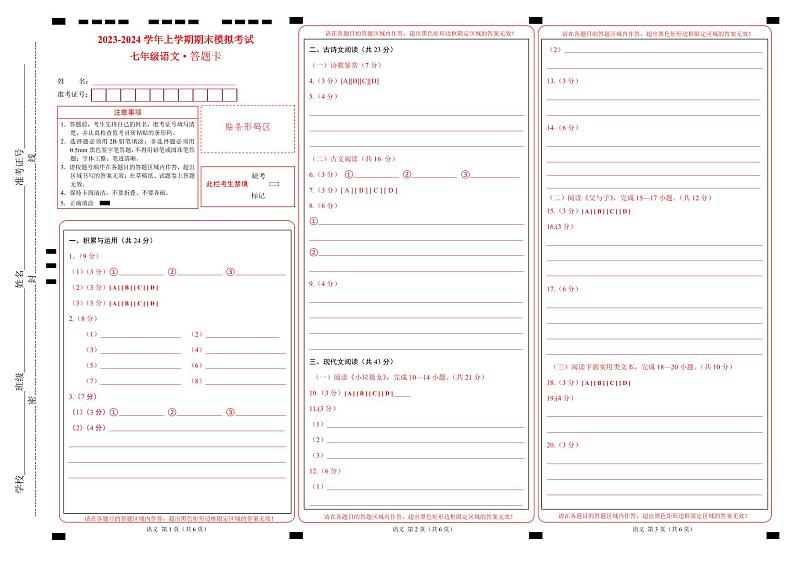 学校
班级
姓名
准考证号
密
封
线
2023-2024 学年上学期期末模拟考试
七年级语文·答题卡
姓 名:
准考证号:
注意事项
1. 答题前,考生先将自己的姓名、准考证号填写清
楚,并认真检查监考员所粘贴的条形码。
2. 选择题必须用 2B 铅笔填涂;非选择题必须用
0.5mm 黑色签字笔答题,不得用铅笔或圆珠笔答
题;字体工整、笔迹清晰。
3. 请按题号顺序在各题目的答题区域内作答,超出
区域书写的答案无效;在草稿纸、试题卷上答题
无效。
4. 保持卡面清洁,不要折叠、不要弄破。
5. 正确填涂
贴条形码区
此栏考生禁填
缺考
标记
一、积累与运用(共 24 分)
1.(9 分)
(1)(3 分)① ② ③
(2)(3 分)[ A ] [ B ] [ C ] [ D ]
(3)(3 分)[ A ] [ B ] [ C ] [ D ]
2.(8 分)
(1) (2)
(3) (4)
(5) (6)
(7) (8)
3.(7 分)
(1)(3 分)① ② ③
(2)(4 分)
请在各题目的答题区域内作答,超出黑色矩形边框限定区域的答案无效!
语文 第 1 页(共 6 页)
请在各题目的答题区域内作答,超出黑色矩形边框限定区域的答案无效!
二、古诗文阅读(共 23 分)
(一)诗歌鉴赏(7 分)
4.(3 分)[A][B][C][D]
5.(4 分)
(二)古文阅读(共 16 分)
6.(3 分) ① ② ③
7.(3 分)[ A ] [ B ] [ C ] [ D ]
8.(6 分)
①
②
9.(4 分)
三、现代文阅读(共 43 分)
(一)阅读《小垃圾女》,完成 10—14 小题。(共 21 分)
10.(3 分)[ A ] [ B ] [ C ] [ D ]
11.(3 分)
(1)
(2)
(3)
12.(6 分)
(1)
请在各题目的答题区域内作答,超出黑色矩形边框限定区域的答案无效!
语文 第 2 页(共 6 页)
请在各题目的答题区域内作答,超出黑色矩形边框限定区域的答案无效!
(2)
13.(3 分)
14.(6 分)
(二)阅读《父与子》,完成 15—17 小题。(共 12 分)
15.(3 分)[ A ] [ B ] [ C ] [ D ]
16.(3 分)
17.(6 分)
(三)阅读下面实用类文本,完成 18—20 小题。(共 10 分)
18.(3 分)[ A ] [ B ] [ C ] [ D ]
19.(4 分)
20.(3 分)
请在各题目的答题区域内作答,超出黑色矩形边框限定区域的答案无效!
语文 第 3 页(共 6 页)